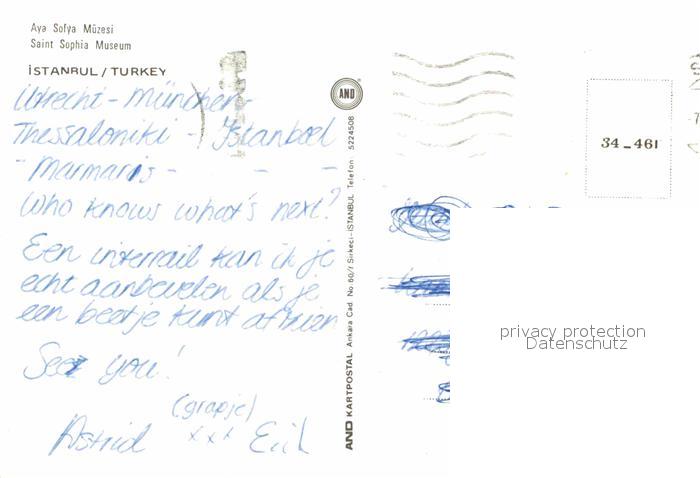 Aya Sofya Müzesi
Saint Sophia Museum
İSTANBUL / TURKEY
Utrecht - München -
Thessaloniki - Istanboel
- Marmaris - - -
Who knows what's next?
Een interrail kan ik je
echt aanbevelen als je
een beetje kunt afzien
See you!
(grapje)
Astrid xxx Erik
AND
AND KARTPOSTAL Ankara Cad. No: 60/1 Sirkeci-İSTANBUL Telefon: 5224508
34-461
privacy protection
Datenschutz